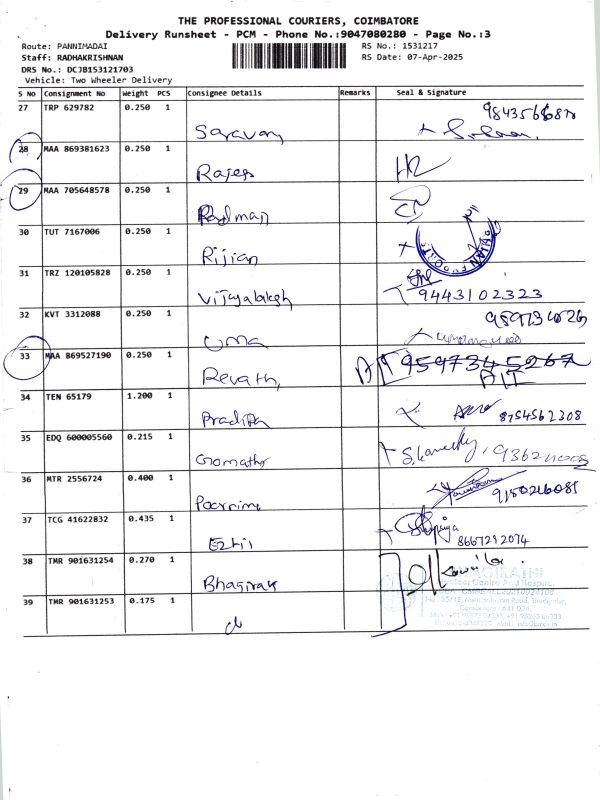 THE PROFESSIONAL COURIERS, COIMBATORE
Delivery Runsheet - PCM - Phone No.:9047080280 - Page No.:3
Route: PANNIMADAI RS No.: 1531217
Staff: RADHAKRISHNAN RS Date: 07-Apr-2025
DRS No.: DCJB153121703
Vehicle: Two Wheeler Delivery
S No Consignment No Weight PCS Consignee Details Remarks Seal & Signature
27 TRP 629782 0.250 1
Saravan
28 MAA 869381623 0.250 1
Rajesh
29 MAA 705648578 0.250 1
Padman
30 TUT 7167006 0.250 1
Rijian
31 TRZ 120105828 0.250 1
Vijayalaksh 9443102323
32 KVT 3312088 0.250 1
Uma
33 MAA 869527190 0.250 1 9597345267
Revathi
34 TEN 65179 1.200 1
Pradip 8754562308
35 EDQ 600005560 0.215 1
Gomathi
36 MTR 2556724 0.400 1
Poornima 9150216081
37 TCG 41622832 0.435 1
Ezhil 8667292074
38 TMR 901631254 0.270 1
Bhagirath
39 TMR 901631253 0.175 1